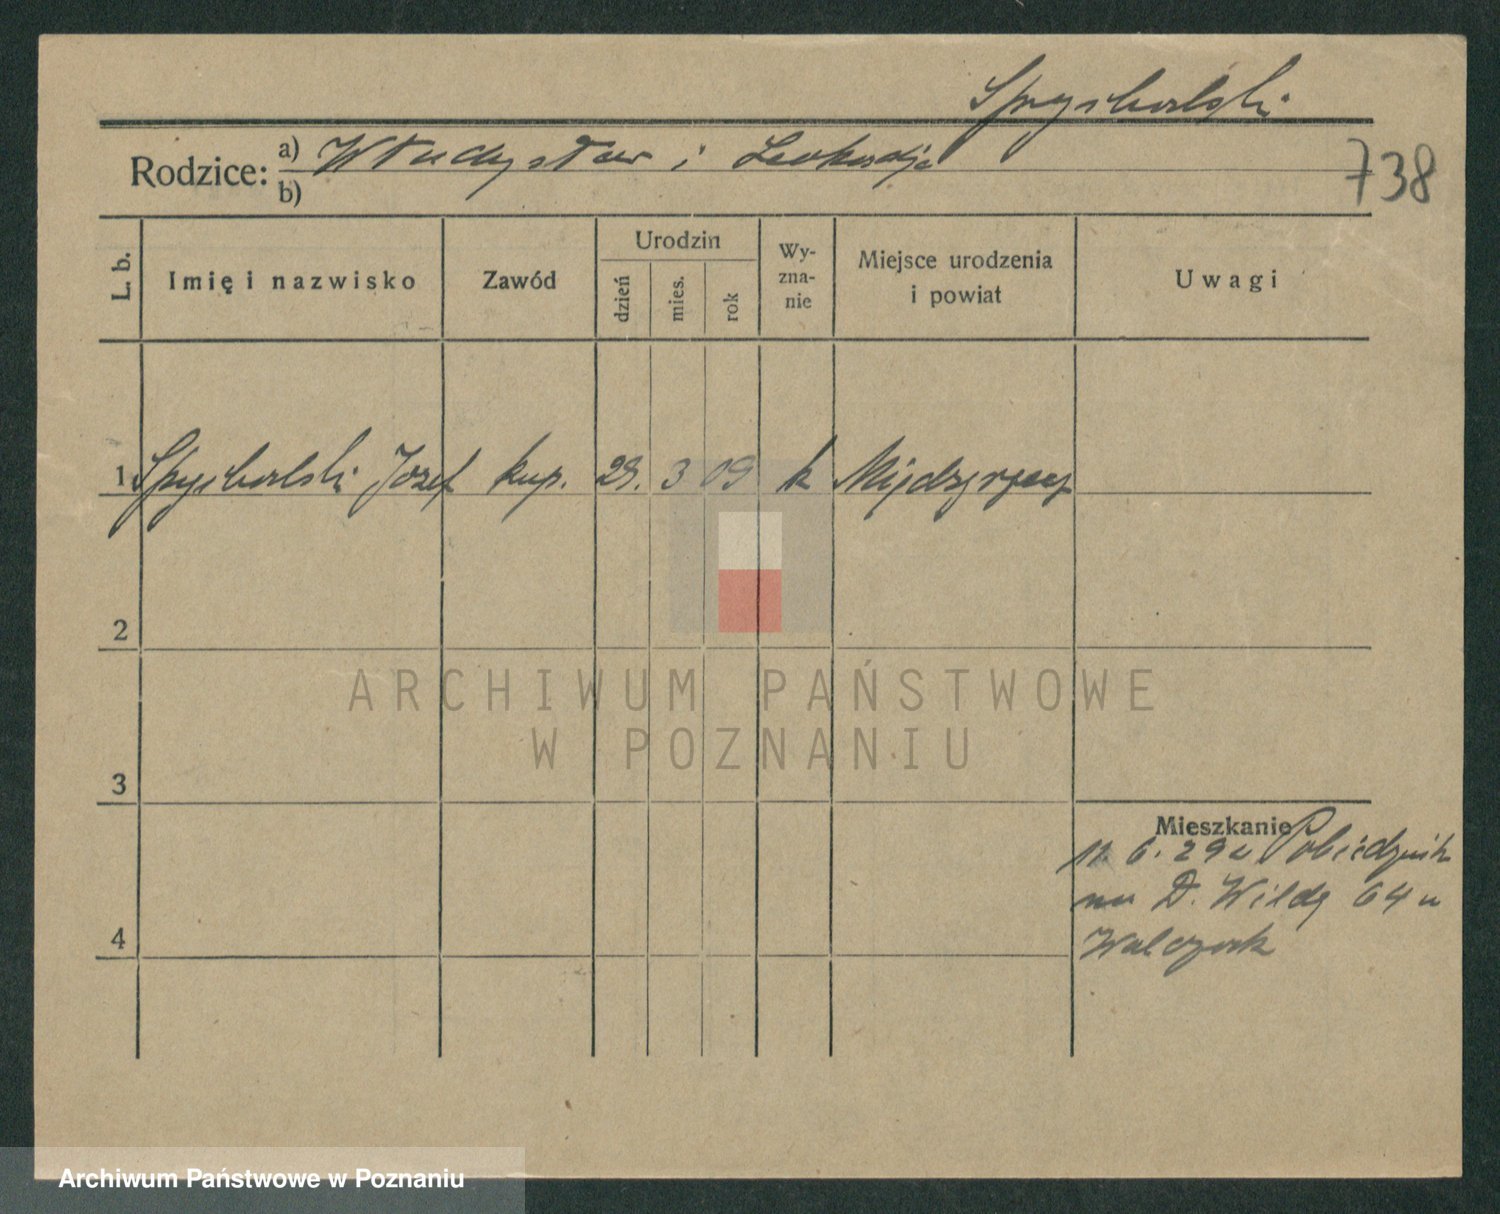 Spychalski
Rodzice: a) Władysław i Leokadja
b)
738
L. b.
Imię i nazwisko
Zawód
Urodzin
dzień
mies.
rok
Wy-
zna-
nie
Miejsce urodzenia
i powiat
Uwagi
1 Spychalski Józef kup. 29. 3 09 k Międzyrzecz
2
ARCHIWUM PAŃSTWOWE
W POZNANIU
3
Mieszkanie
11. 6. 29 z Pobiedzisk
na D. Wildę 64 u
Walczak
4
Archiwum Państwowe w Poznaniu